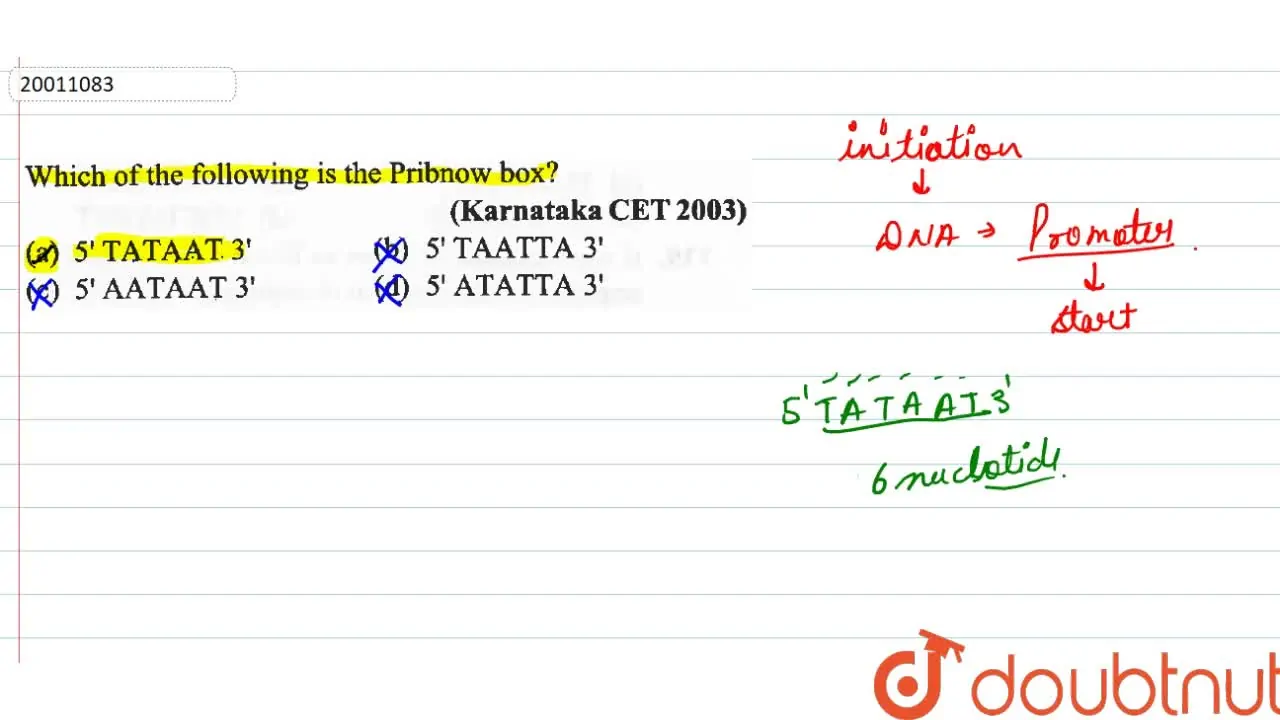 20011083
Which of the following is the Pribnow box?
(Karnataka CET 2003)
(a) 5' TATAAT 3' (b) 5' TAATTA 3'
(c) 5' AATAAT 3' (d) 5' ATATTA 3'
initiation
↓
DNA → Promoter
↓
start
5' TATAAT 3'
6 nucleotide
doubtnut